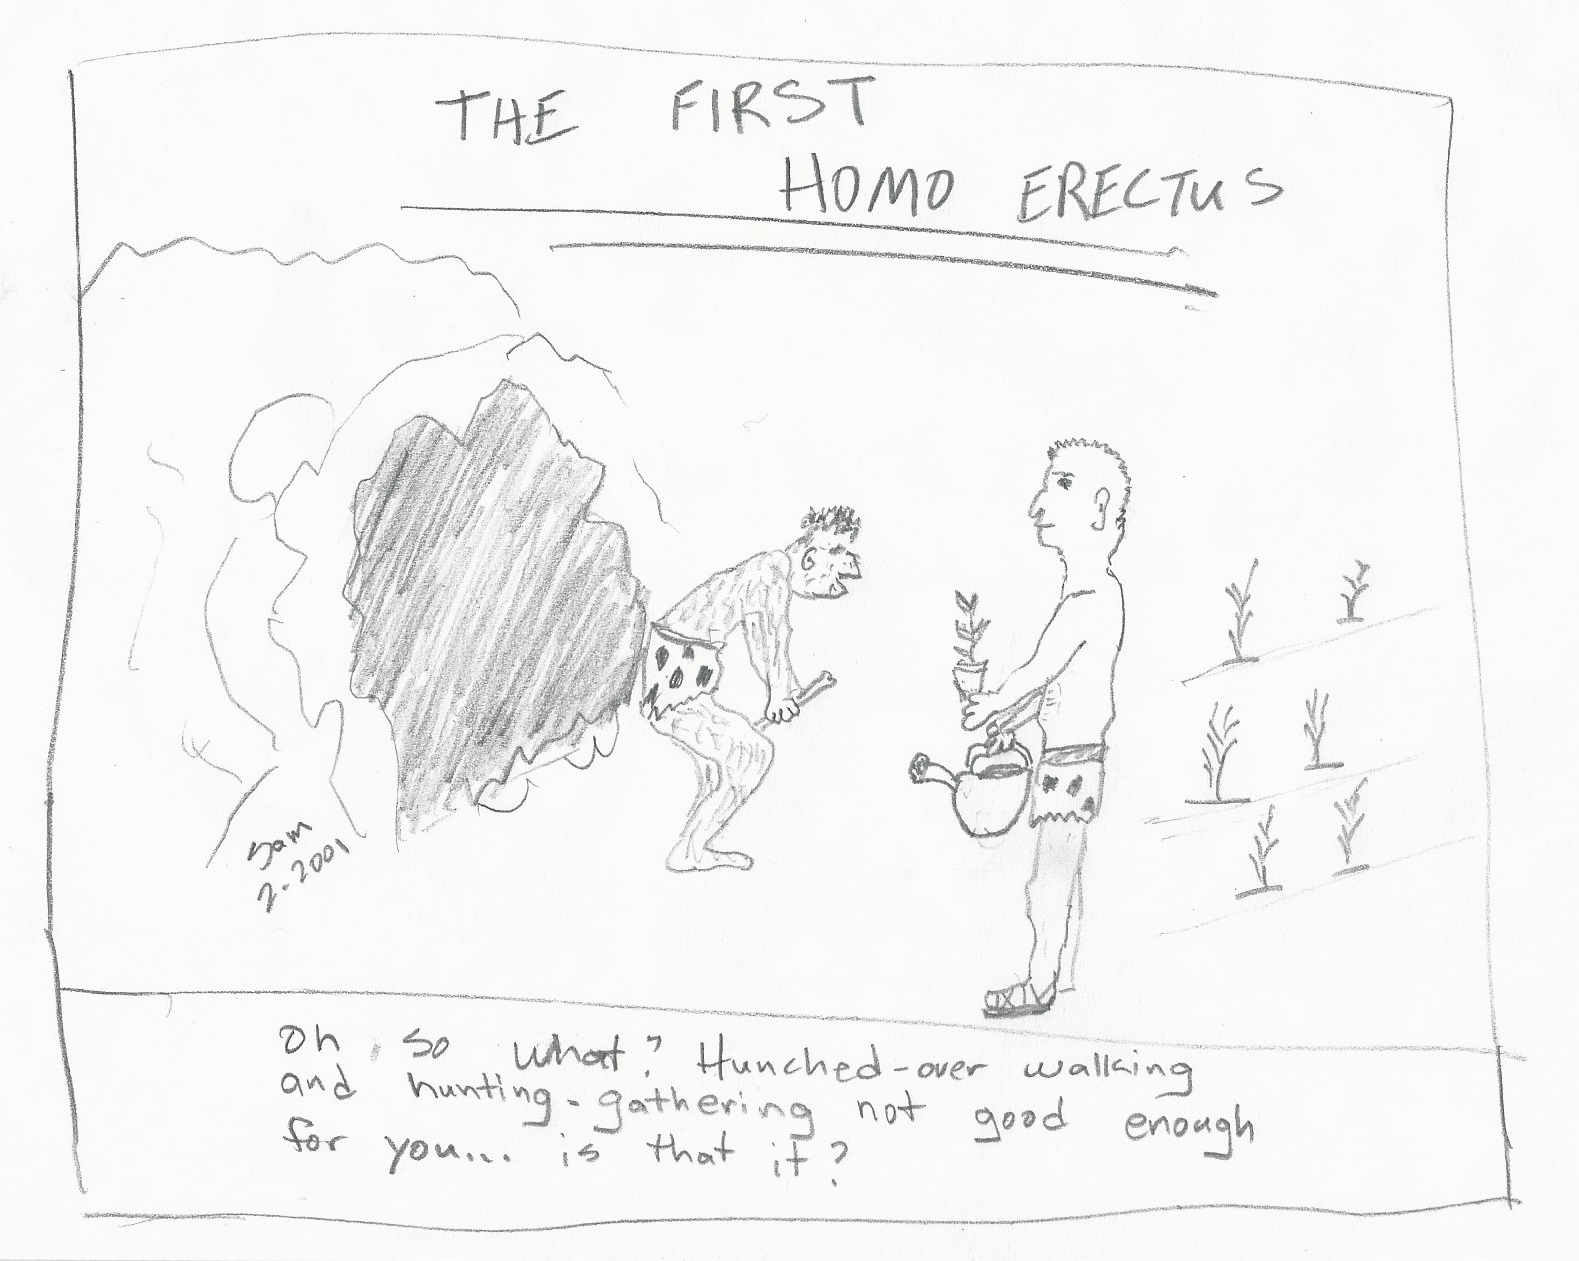 THE FIRST
HOMO ERECTUS
Sam
2-2001
Oh, so what? Hunched-over walking
and hunting-gathering not good enough
for you... is that it?